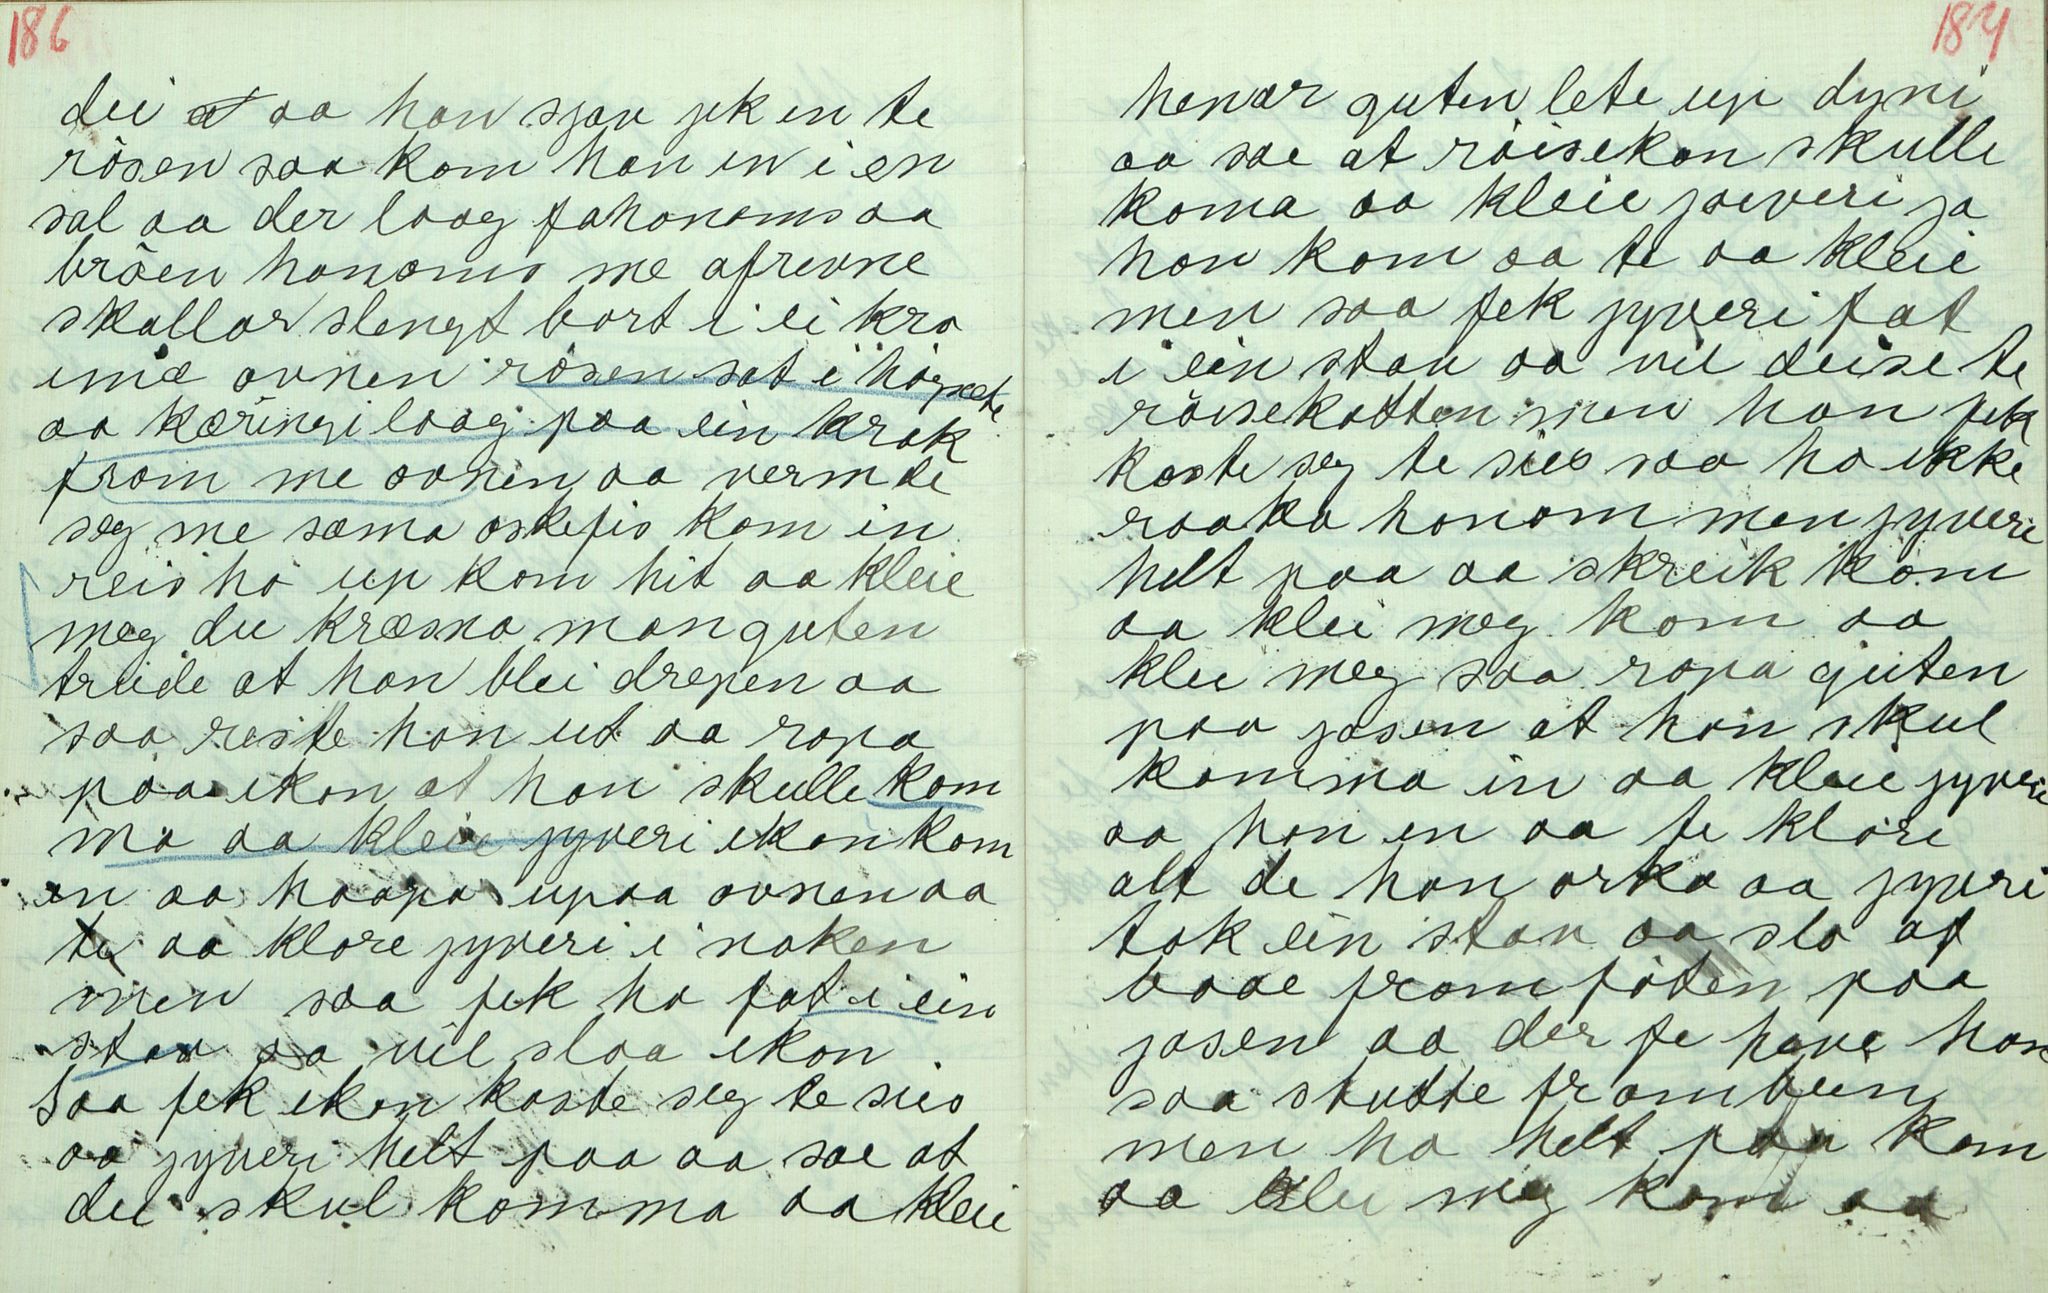 186
dei aa han sjøv jek in te
rösen saa kom han in i en
sal aa der laag fahonoms aa
bröen honoms me afrevne
skallar slengt bort i ei kra
imæ ovnen rösen sat i högsete
aa kæringi laag paa ein krak
fram me ovnen aa vermde
seg me sama oskefis kom in
reis ho up kom hit aa kleie
meg du kræsna man guten
trude at han blei drepen aa
saa reste han ut aa ropa
paa ikon at han skulle kom
ma aa kleie jyveri ikon kom
in aa hoapa upaa ovnen aa
te aa klore jyveri i naken
men saa fek ho fat i ein
stav aa vil slaa ikon
Saa fek ikon kaste seg te sies
aa jyveri helt paa aa sae at
du skul komma aa kleie
187
henar guten lete up dyni
aa sae at röisekon skulle
koma aa kleie jyveri ja
han kom aa te aa kleie
men saa fek jyveri fat
i ein stav aa vil deise te
röisekatten men han fek
kaste seg te sies saa ho ikke
raaka honom men jyveri
helt paa aa skreik kom
aa klei meg kom aa
klei meg saa ropa guten
paa jasen at han skul
komma in aa kleie jyveri
aa han in aa te klore
alt de han orka aa jyvri
tok ein stav aa slo af
baae framföten paa
jasen aa der fe have han
saa stutte frambein
men ho helt paa kom
aa klei meg kom aa